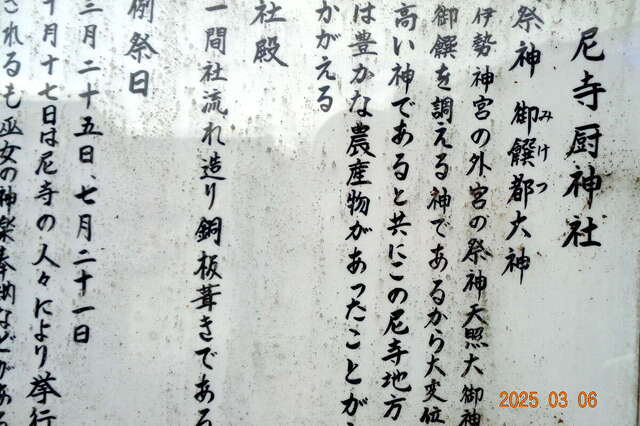 尼寺厨神社
祭神 御饌都大神
みけつ
伊勢神宮の外宮の祭神天照大御神
御饌を調える神であるから大変位
高い神であると共にこの尼寺地方
は豊かな農産物があったことが
かがえる
社殿
一間社流れ造り銅板葺きである
例祭日
三月二十五日、七月二十一日
十月十七日は尼寺の人々により挙行
されるも巫女の神楽奉納などがある
2025 03 06